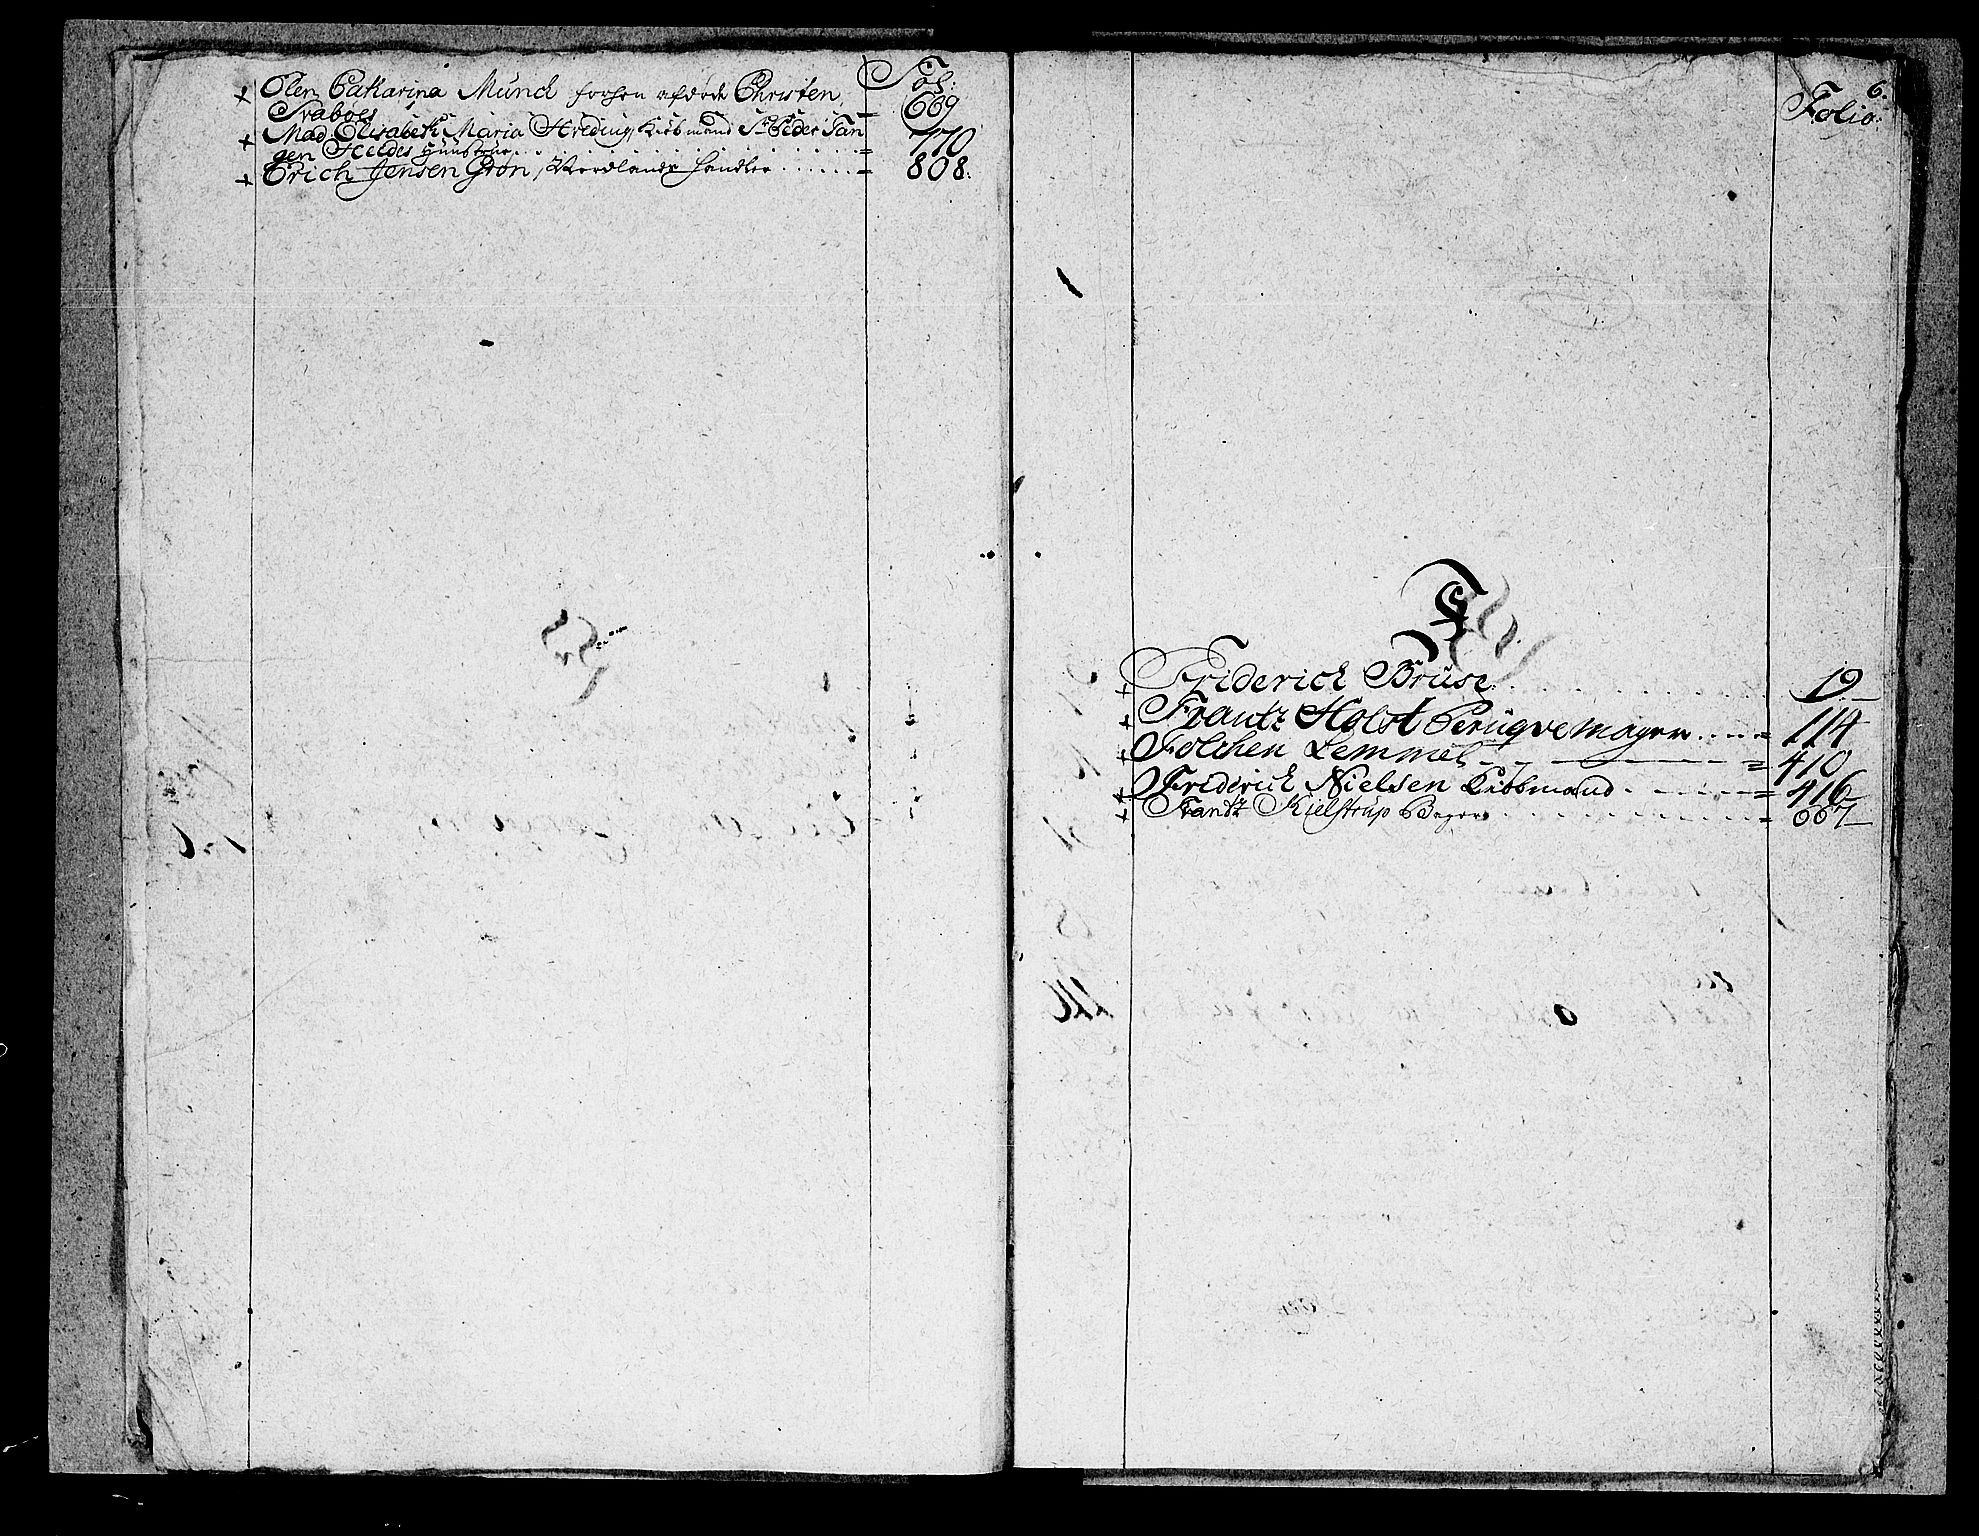 Fol:
Elen Catharina Münch forhen afdøde Christen
Svaboes = 669
Mad. Elisabeth Maria Hveding, Kiøbmand Sr. Peder Tan
gen Heldes Huustrue = 770
Erich Jensen Grøn, Nordlands handler = 808.
6.
Folio:
F
Friderich Brüse 19
Frantz Holst Peruqvemager = 114
Folchen Lemmel = 410
Friderich Nielsen Kiøbmand = 416
Frantz Kielstrup Bager = 667